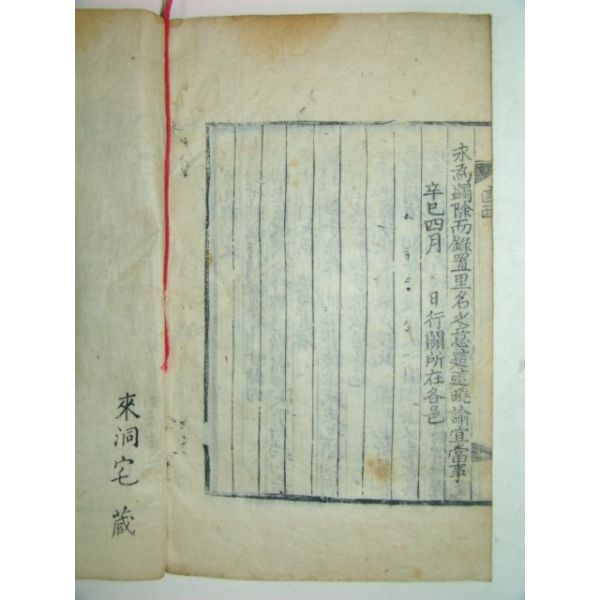 永爲蠲除而錄置里名之意這這曉諭宜當事
辛巳四月 日行關所在各邑
來洞宅 藏